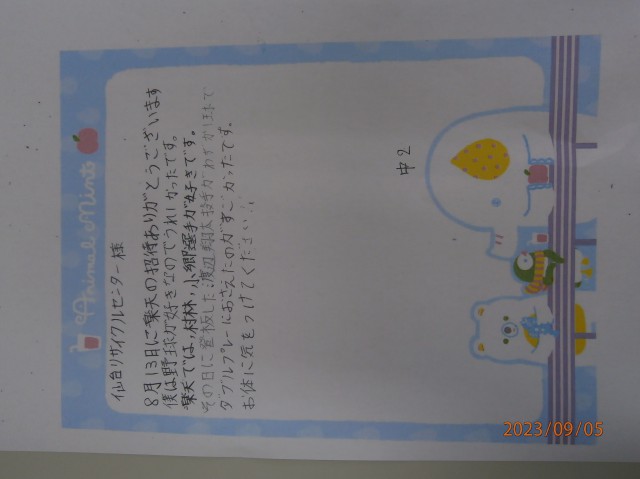 Animal Mints
仙台リサイクルセンター様
8月13日に楽天の招待ありがとうございます
僕は野球が好きなのでうれしかったです。
楽天では、村林、小郷選手が好きです。
その日に登板した渡辺翔太投手がわずか1球で
ダブルプレーにおさえたのがすごかったです。
お体に気をつけてください!!
中2
2023/09/05